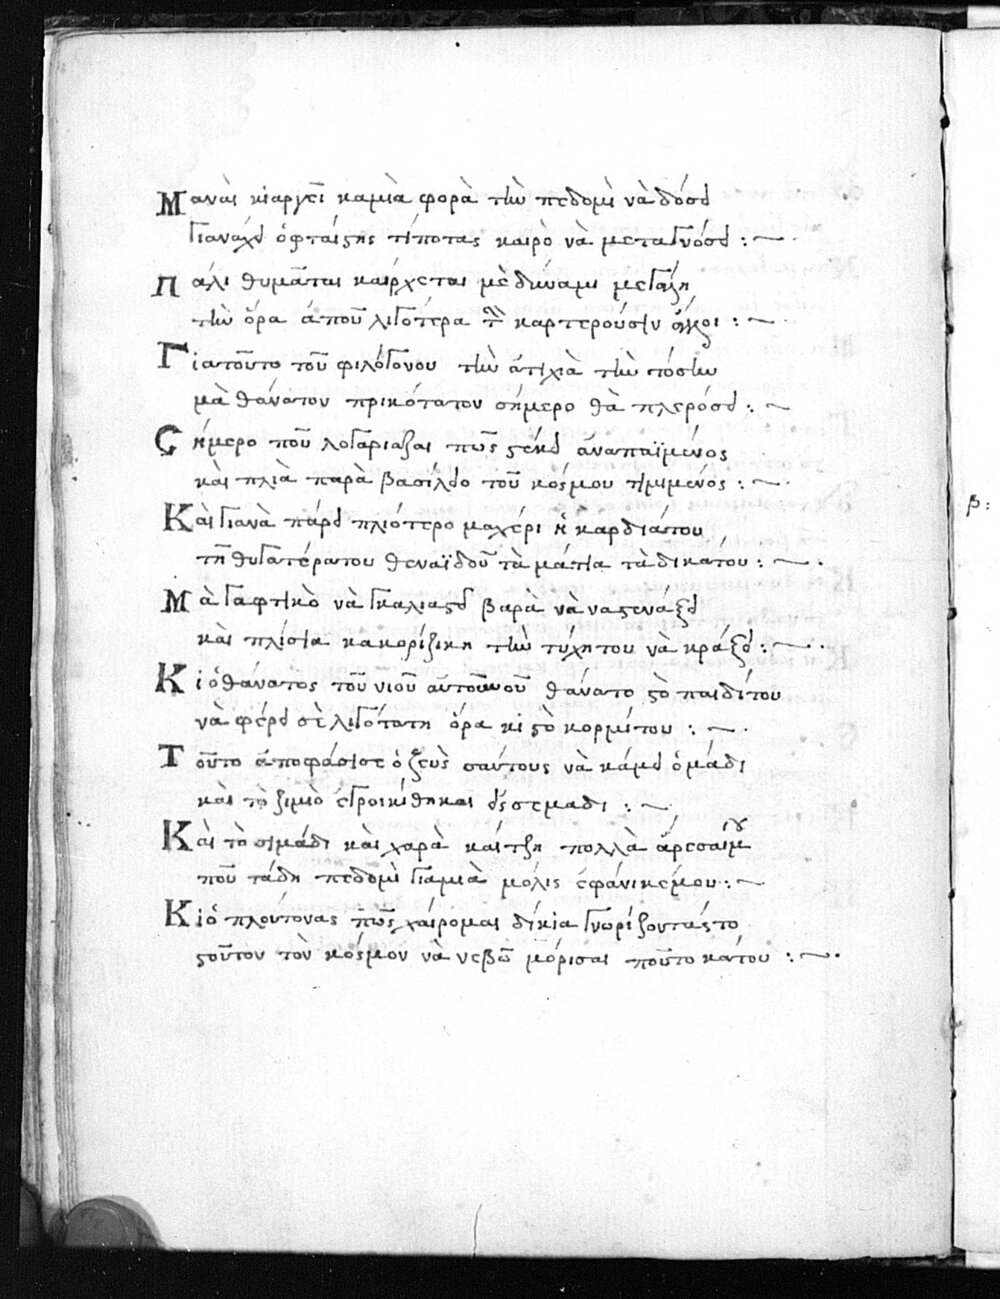 Μαναὶ κιαργεῖ καμιὰ φορὰ τὴν πεδομὶ νὰ δόσει
Γιαναχει ὁφταίστης τίποτας καιρὸ νὰ μεταγνόσει :~
Πάλι θυμᾶται καιρχεται μὲ δύναμι μεγάλη
τὴν ὅρα ἁποῦ λιγότερα τὴ καρτερούσιν ἄλλοι :~
Γιατοῦτο τοῦ φιλόγονου τὴν ἀτιχιὰ τὴν τόσην
μὰ θάνατον πρικότατον σήμερο θὰ πλερόσει :~
Σήμερο ποῦ λογαριαζαι πῶς στένει ἀναπαϊμένος
κὰι πλιὰ παρὰ βασιλέο τοῦ κόσμου τιμιμένος :~
Κὰι γιανὰ πάρει πλιότερο μαχέρι ἡ καρδιάτου
τῆ θυγατέρατου θεναϊδοῦ τὰ μάτια τὰ δικάτου :~
Μὰ γαφτικὸ νὰ γκαλιαστεῖ βαρὰ νὰ ναστενάξει
κὰι πλίσια κακορίζικη τὴν τύχητου νὰ κράξει :~
Κι ὁ θάνατος τοῦ νιοῦ αὐτουνοῦ θάνατο στὸ παιδίτου
νὰ φέρει σὲ λιγότατη ὅρα κι στὸ κορμίτου :~
Τοῦτο ἁποφάσισε ὁ ζεὺς σαύτους νὰ κάμει ὁμάδι
κὰι τὸ ζιμιὸ ἐγροικίθηκαι εἰς σεμαδι :~
Κὰι τὸ σιμάδι κὰι χαρὰ κάιτζη πολλὰ ἄρεσαίμου
ποῦ τάδη πεδομὶ γιαμιὰ μόλις ἐφάνικεμου :~
Κι ὁ πλουτονας πῶς χαίρομαι δίκια γνωρίζοντάςτο
στοῦτον τὸν κόσμον νὰ νεβῶ μόρισαι ποῦτο κάτου :~
β: